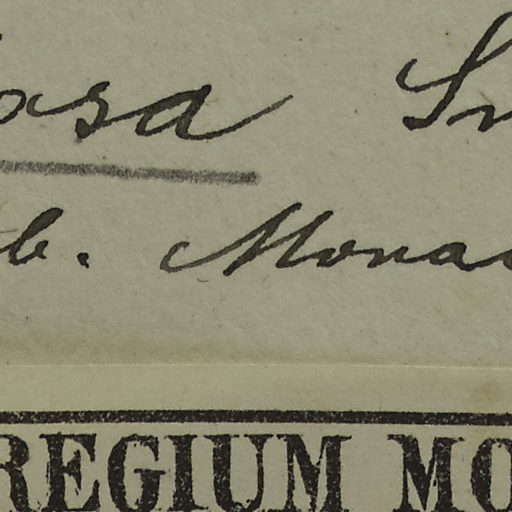 osa Sm
b. Monac
REGIUM MO